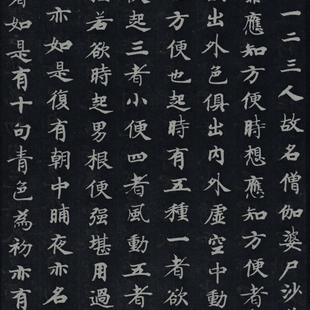 一二三人故名僧伽婆尸沙
應知方便時想應知方便者
出外色俱出内外虛空中動
方便也起時有五種一者欲
便起三者小便四者風動五者
若欲時起男根便强堪用過
亦如是復有朝中晡夜亦名
如是有十句青色為初亦有